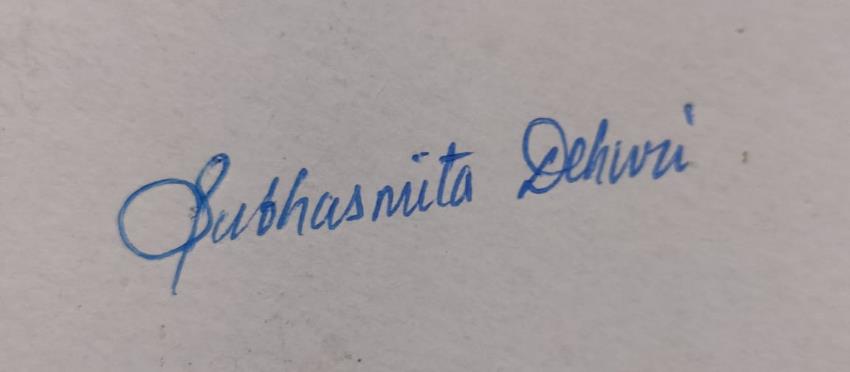 Subhasmita Dehuri